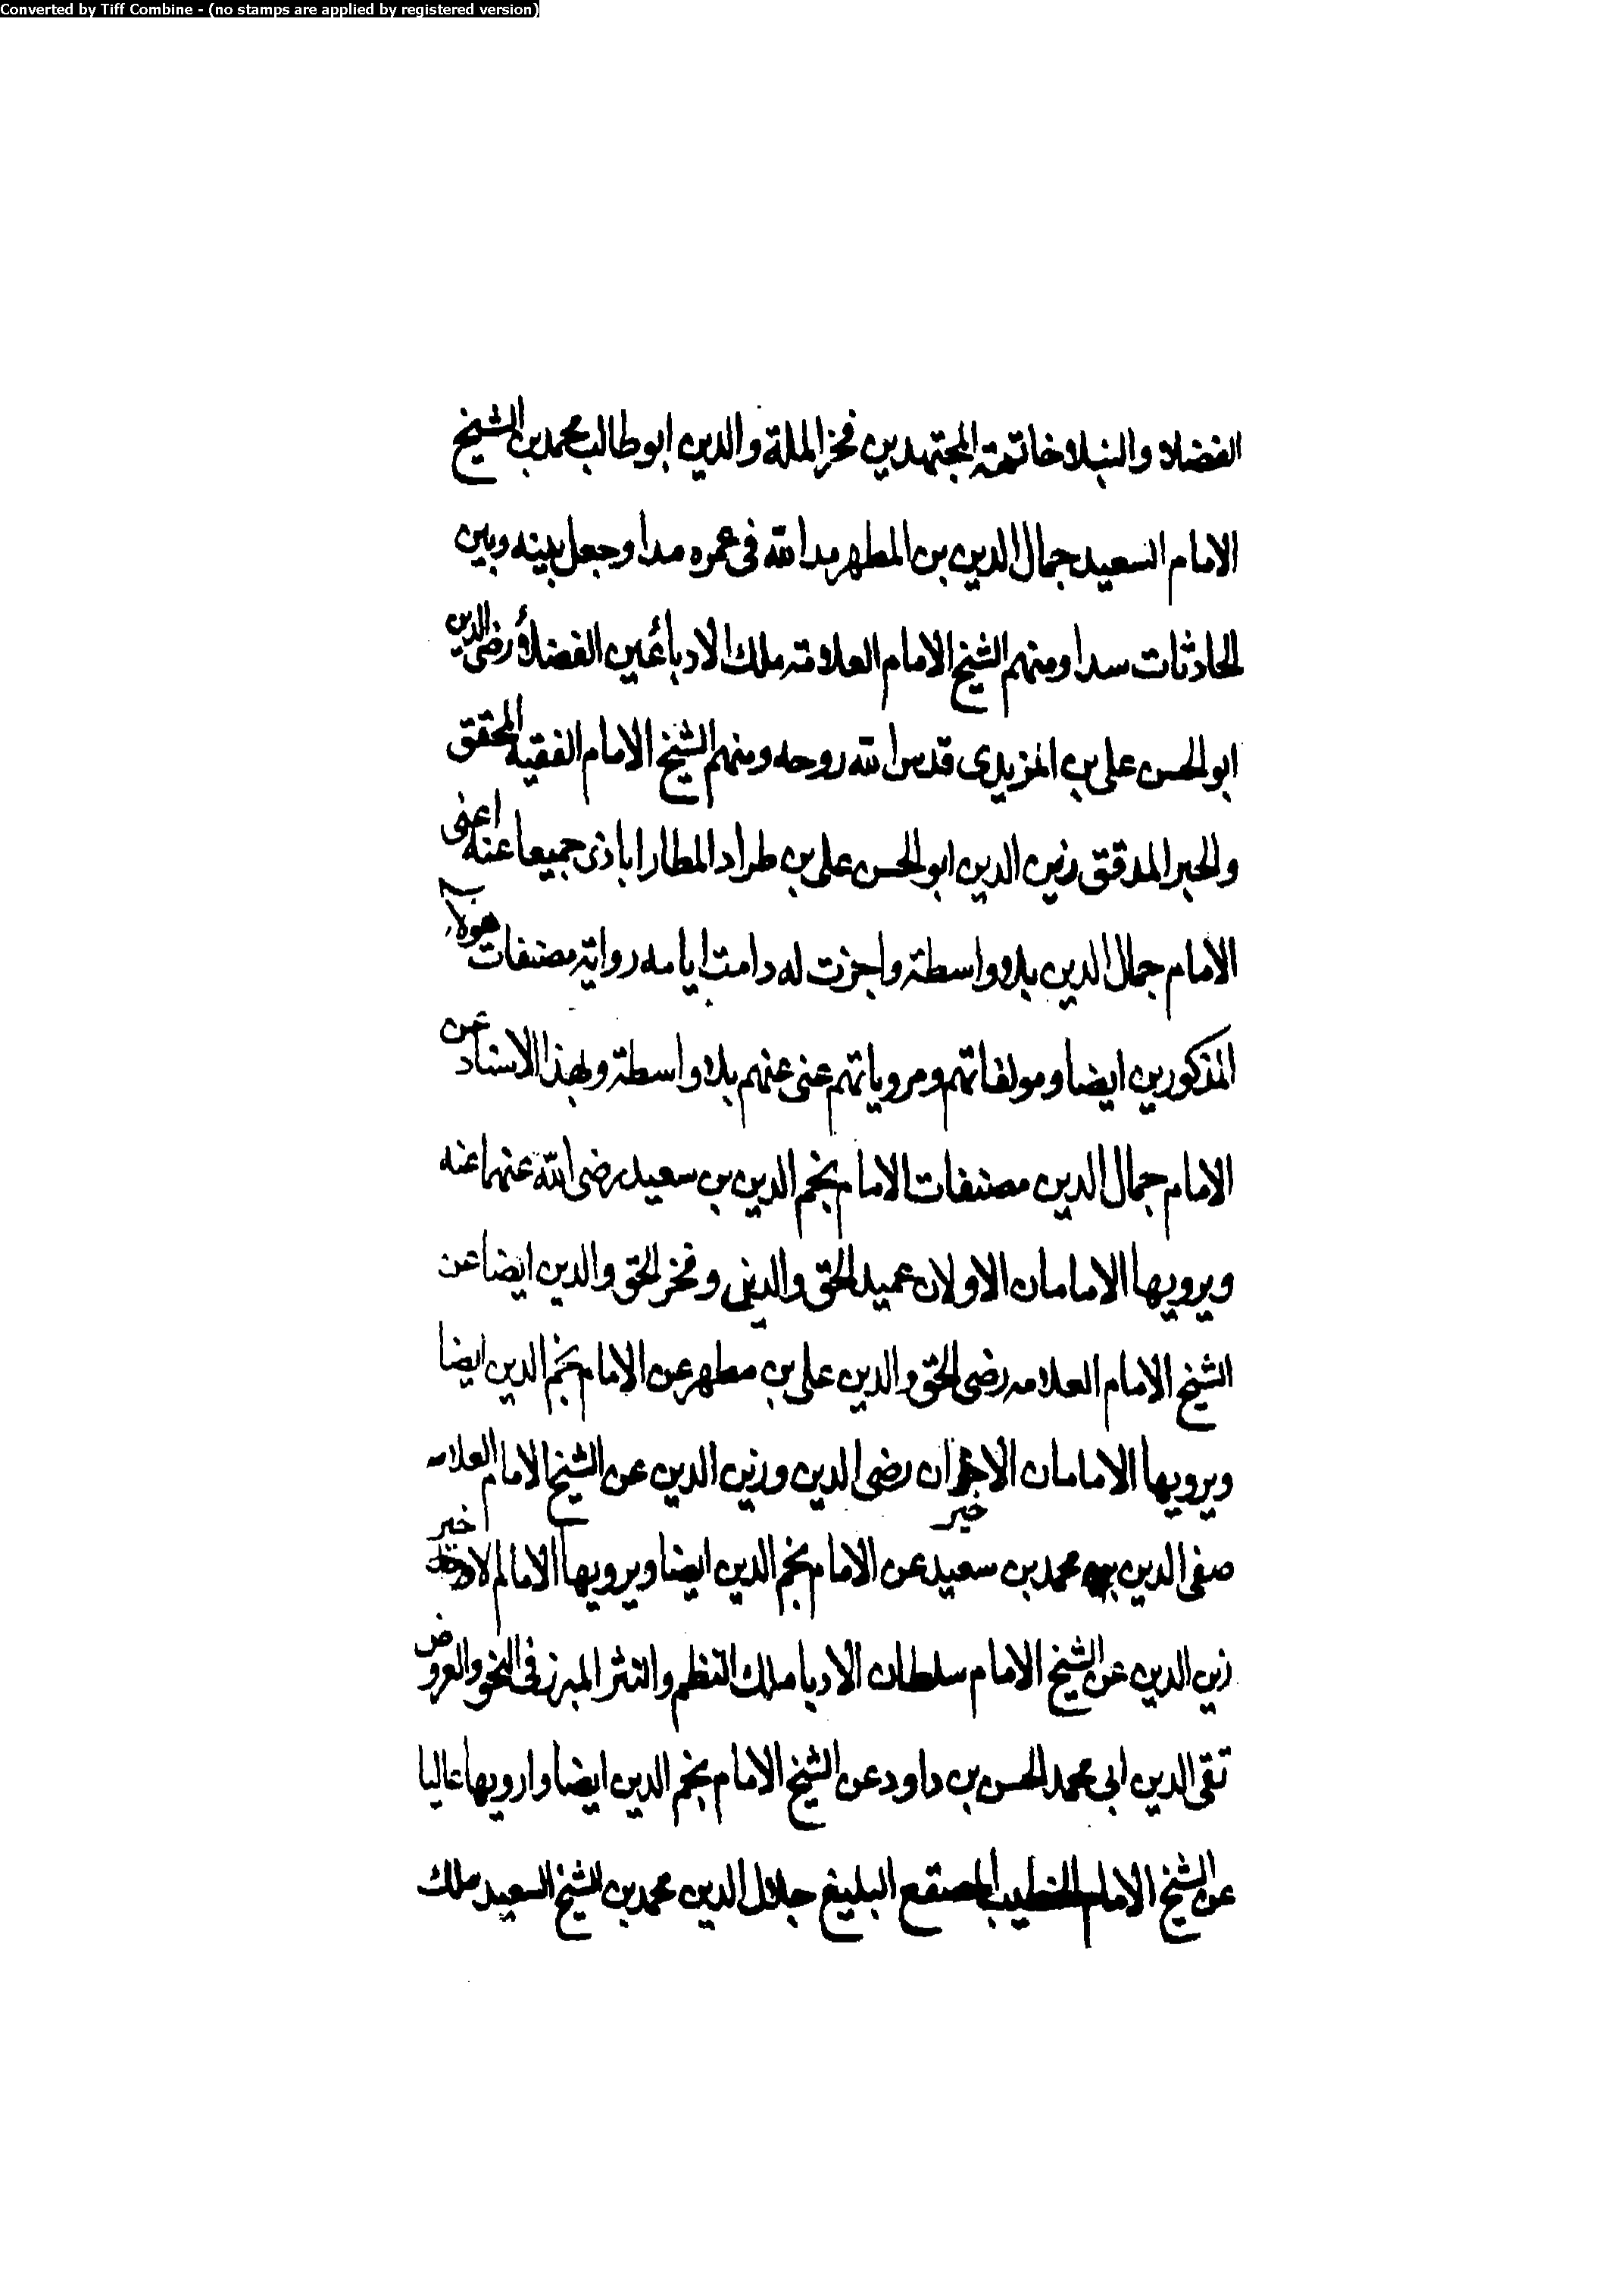 Converted by Tiff Combine - (no stamps are applied by registered version)
الفضلا والنبلا خاتمة المجتهدين فخر الملة والدين ابو طالب محمد بن الشيخ
الامام السعيد جمال الدين بن المطهر مد الله فى عمره مدا وجعل بينه وبين
الحادثات سدا ومنهم الشيخ الامام العلامة ملك الادبأ عين الفضلأ رضى الدين
ابو الحسن على بن المزيدى قدس الله روحه ومنهم الشيخ الامام الفقيه المحقق
والحبر المدقق زين الدين ابو الحسن على بن طراد المطارابادى جميعا عنه اعنى
الامام جمال الدين بلا واسطة واجزت له دامت ايامه رواية مصنفات هولاء
المذكورين ايضا ومولفاتهم ومروياتهم عنى عنهم بلا واسطة وبهذا الاسناد عن
الامام جمال الدين مصنفات الامام نجم الدين بن سعيد رضى الله عنهما عنه
ويرويها الامامان الاولان عميد الحق والدين وفخر الحق والدين ايضا عن
الشيخ الامام العلامه رضى الحق والدين على بن مطهر عن الامام نجم الدين ايضا
ويرويها الامامان الاخيران رضى الدين وزين الدين عن الشيخ الامام العلامه
صفى الدين محمد بن سعيد عن الامام نجم الدين ايضا ويرويها الامام الاخير
زين الدين عن الشيخ الامام سلطان الادبا ملك النظم والنثر المبرز فى النحو والعروض
تقى الدين ابى محمد الحسن بن داود عن الشيخ الامام نجم الدين ايضا وارويها عاليا
عن الشيخ الامام الخطيب المصقع البليغ جلال الدين محمد بن الشيخ السعيد ملك